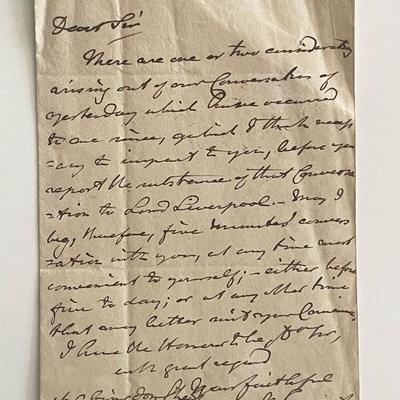 Dear Sir
There are one or two considerations
arising out of our Conversation of
yesterday which have occurred
to me since, which I think necess
=ary to impart to you, before you
report the substance of that Conversa
=tion to Lord Liverpool. – May I
beg, therefore, five minutes' convers
=ation with you, at any time most
convenient to yourself; – either before
five to day; or at any other time
that may better suit your Convenience,
I have the Honour to be, D Sir,
with great regard
Your faithful